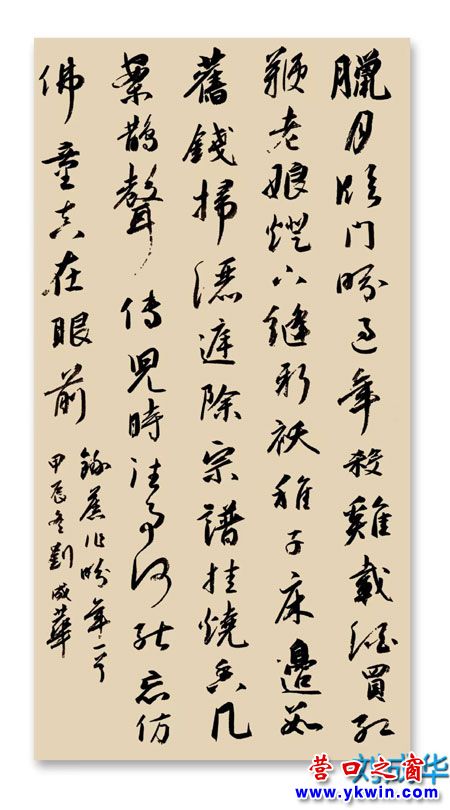 臘月臨門盼過年殺雞載酒買紅
鞭老娘燈下縫新襖稚子床邊數
舊錢掃庭除宗譜挂燒香几
案鵲聲傳兒時往事何能忘仿
佛童真在眼前
錄舊作盼年一首
甲辰冬劉成華
刘成华
营口之窗
www.ykwin.com